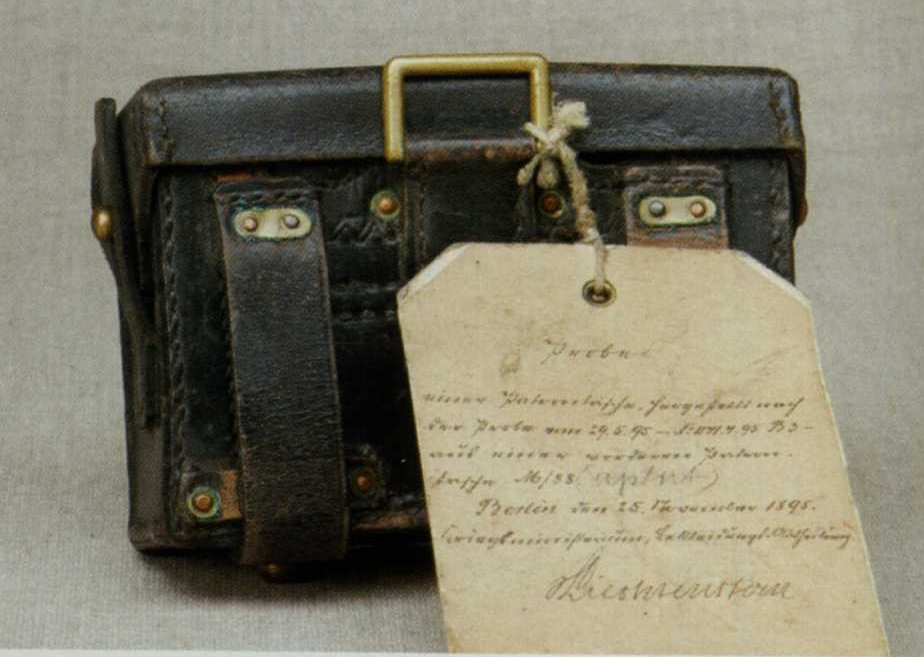 Probe
einer Patrontasche, hergestellt nach
der Probe vom 29.5.95 — 7.95 B3 —
aus einer vorderen Patron-
tasche M/88 (aptirt)
Berlin den 25. November 1895.
Kriegsministerium, Bekleidungs-Abtheilung
Liechtenstern